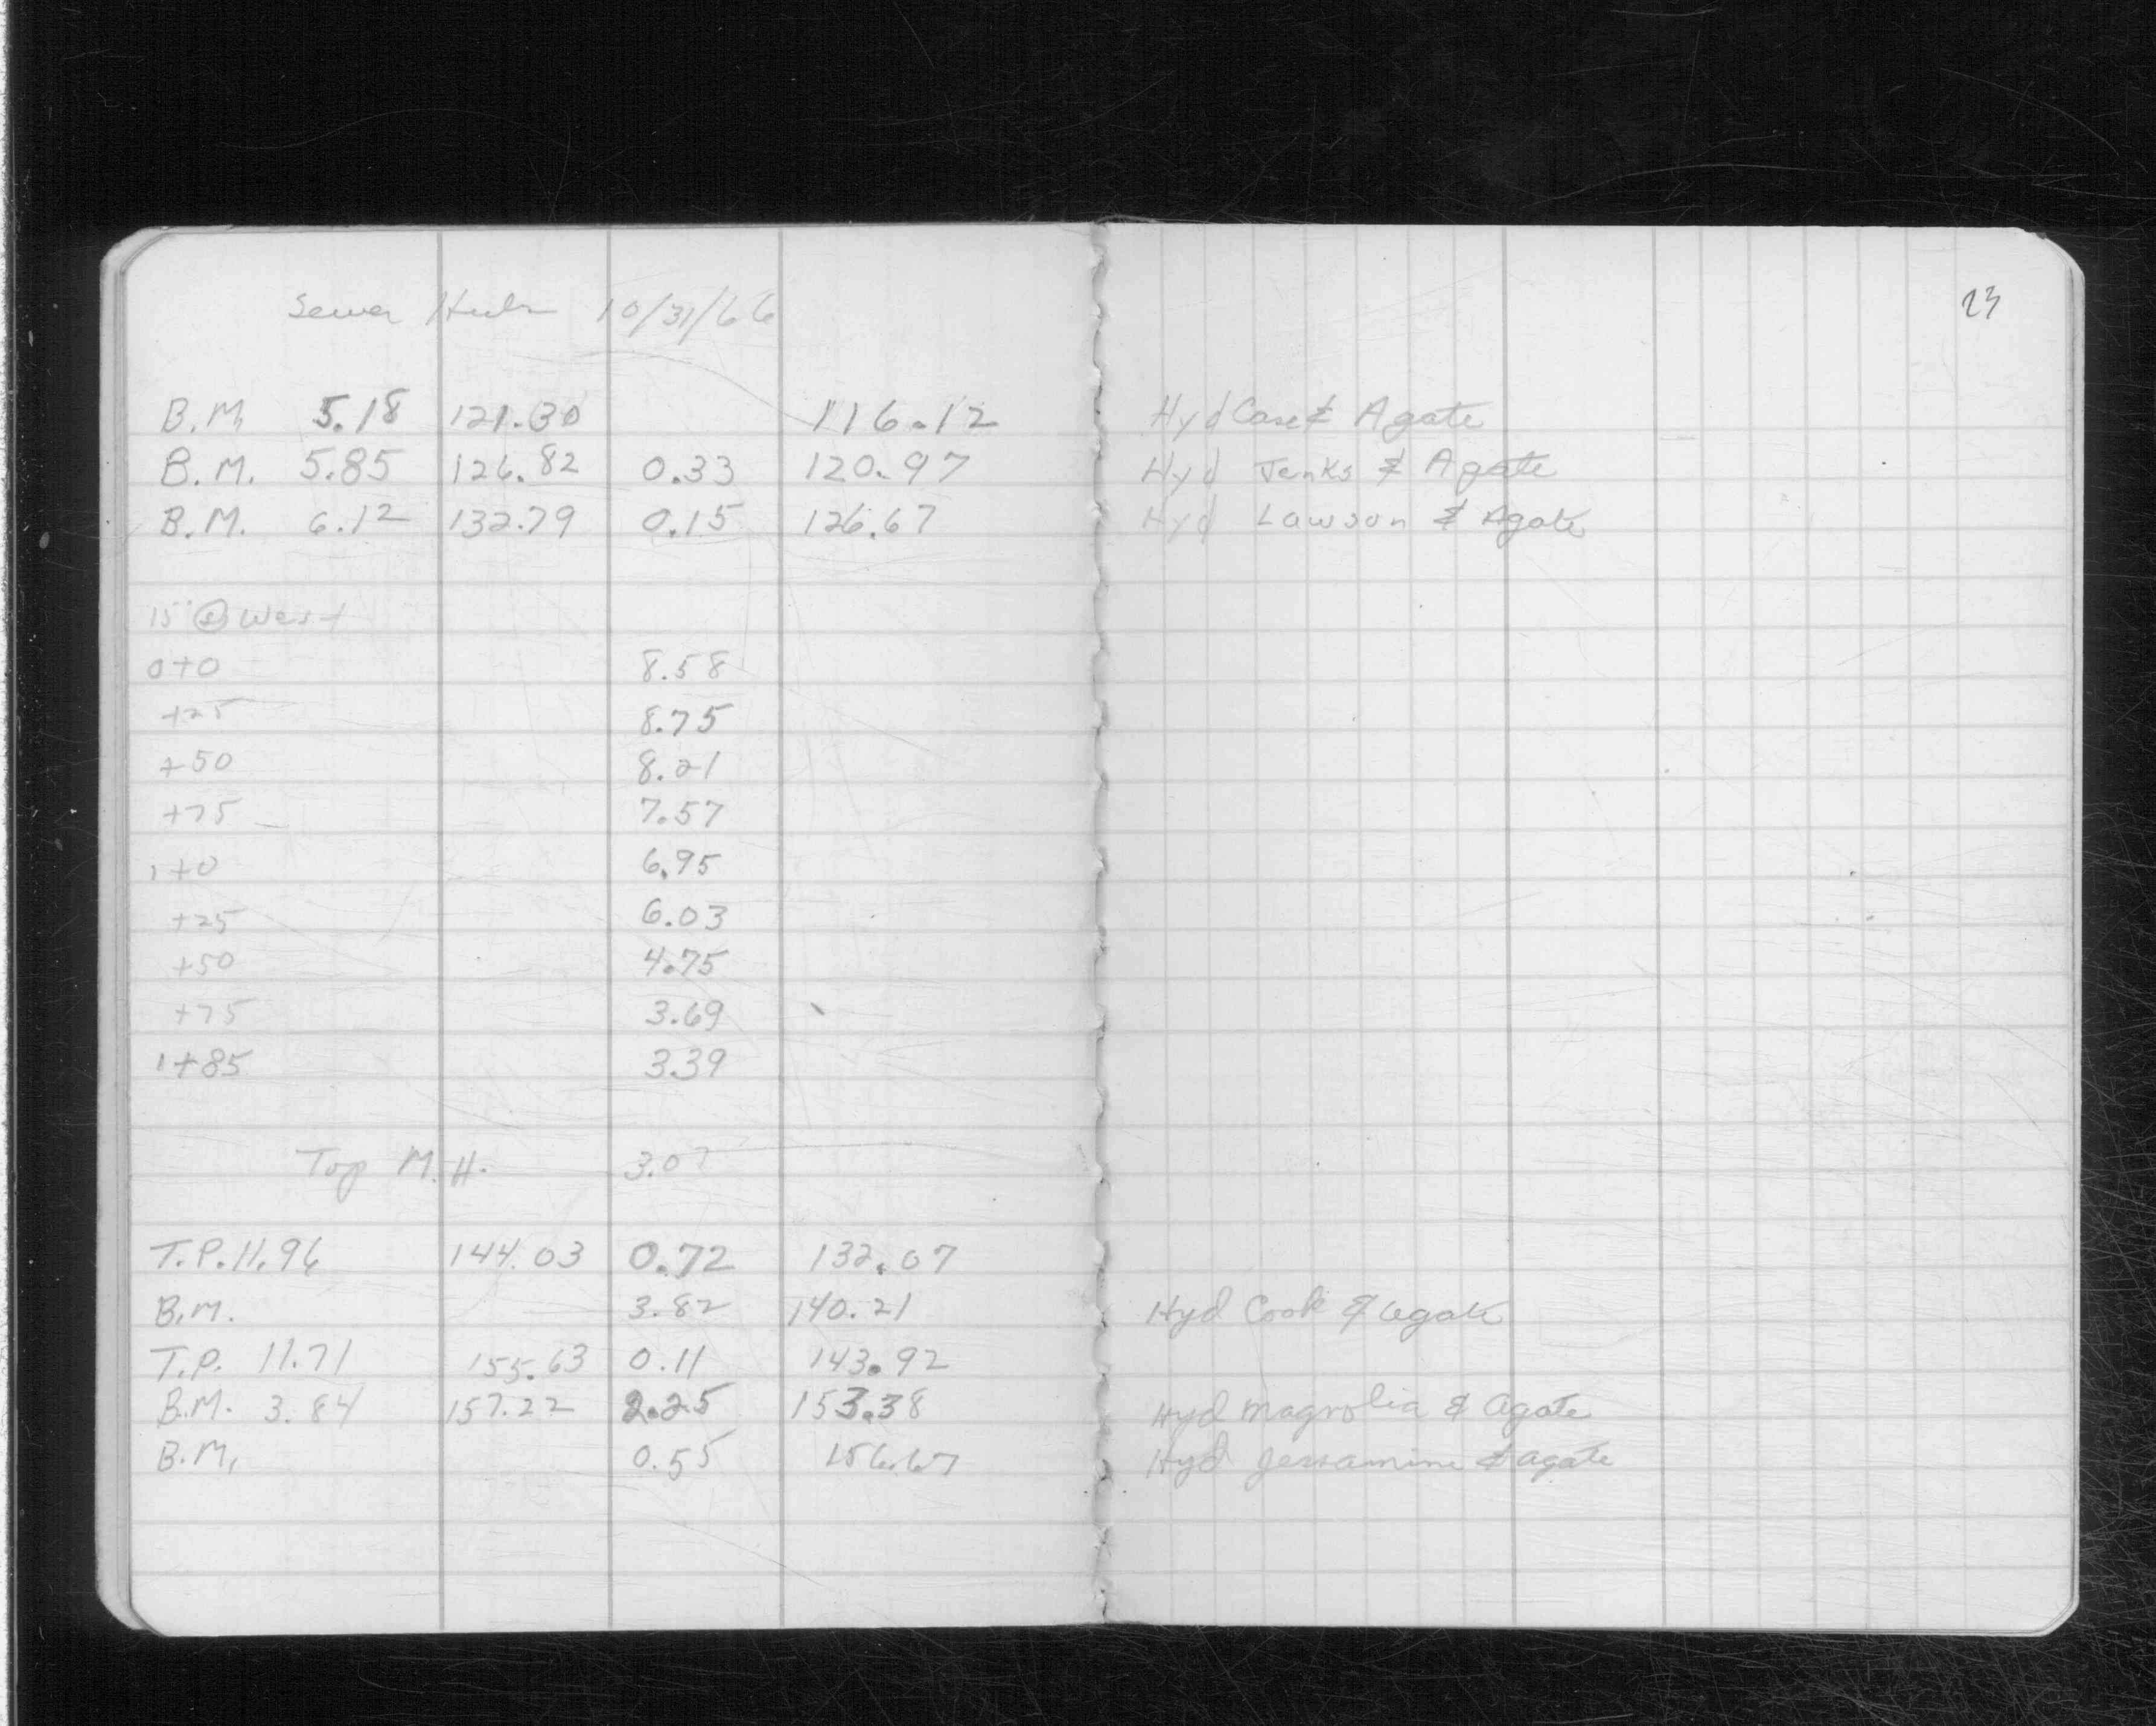 23
Sewer Hubs 10/31/66
B.M. 5.18 121.30 116.12 Hyd Case & Agate
B.M. 5.85 126.82 0.33 120.97 Hyd Jenks & Agate
B.M. 6.12 132.79 0.15 126.67 Hyd Lawson & Agate
15' West
0+0 8.58
+25 8.75
+50 8.21
+75 7.57
1+0 6.95
+25 6.03
+50 4.75
+75 3.69
1+85 3.39
Top M.H. 3.07
T.P. 11.96 144.03 0.72 132.07
B.M. 3.82 140.21 Hyd Cook & Agate
T.P. 11.71 155.63 0.11 143.92
B.M. 3.84 157.22 2.25 153.38 Hyd Magnolia & Agate
B.M. 0.55 156.67 Hyd Jessamine & Agate